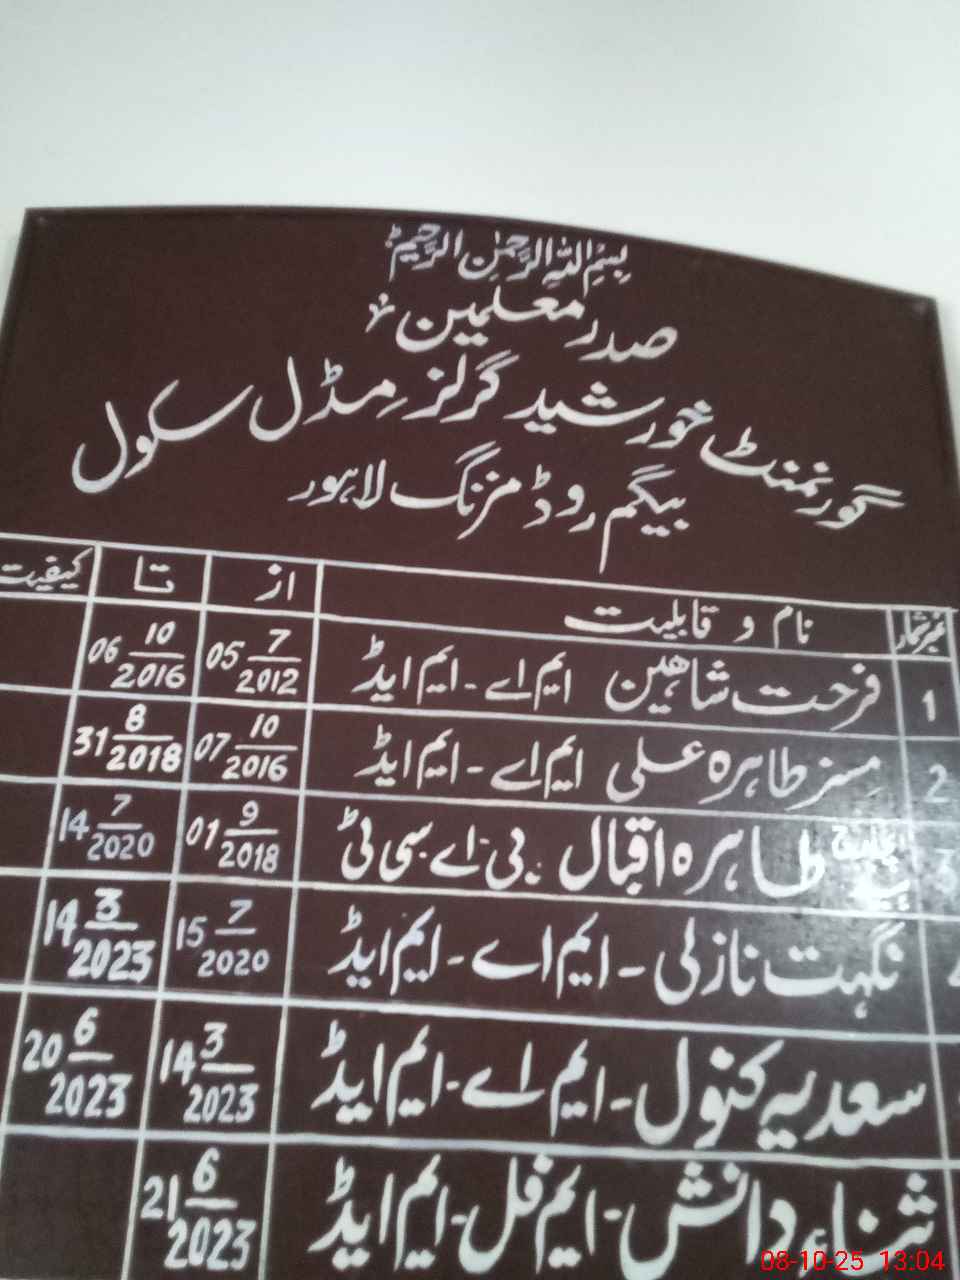 بِسْمِ اللّٰہِ الرَّحمٰنِ الرَّحِیْم
صدر معلمین
گورنمنٹ خورشید گرلز مڈل سکول
بیگم روڈ مزنگ لاہور
نمبر شمار نام و قابلیت از تا کیفیت
1 فرحت شاھین ایم اے - ایم ایڈ 05 7/2012 06 10/2016
2 مسز طاہرہ علی ایم اے - ایم ایڈ 07 10/2016 31 8/2018
3 انچارج ہیڈ طاہرہ اقبال بی اے سی ٹی 01 9/2018 14 7/2020
4 نگہت نازلی - ایم اے - ایم ایڈ 15 7/2020 14 3/2023
سعدیہ کنول - ایم اے - ایم ایڈ 14 3/2023 20 6/2023
ثناء دانش - ایم فل - ایم ایڈ 21 6/2023
08-10-25 13:04